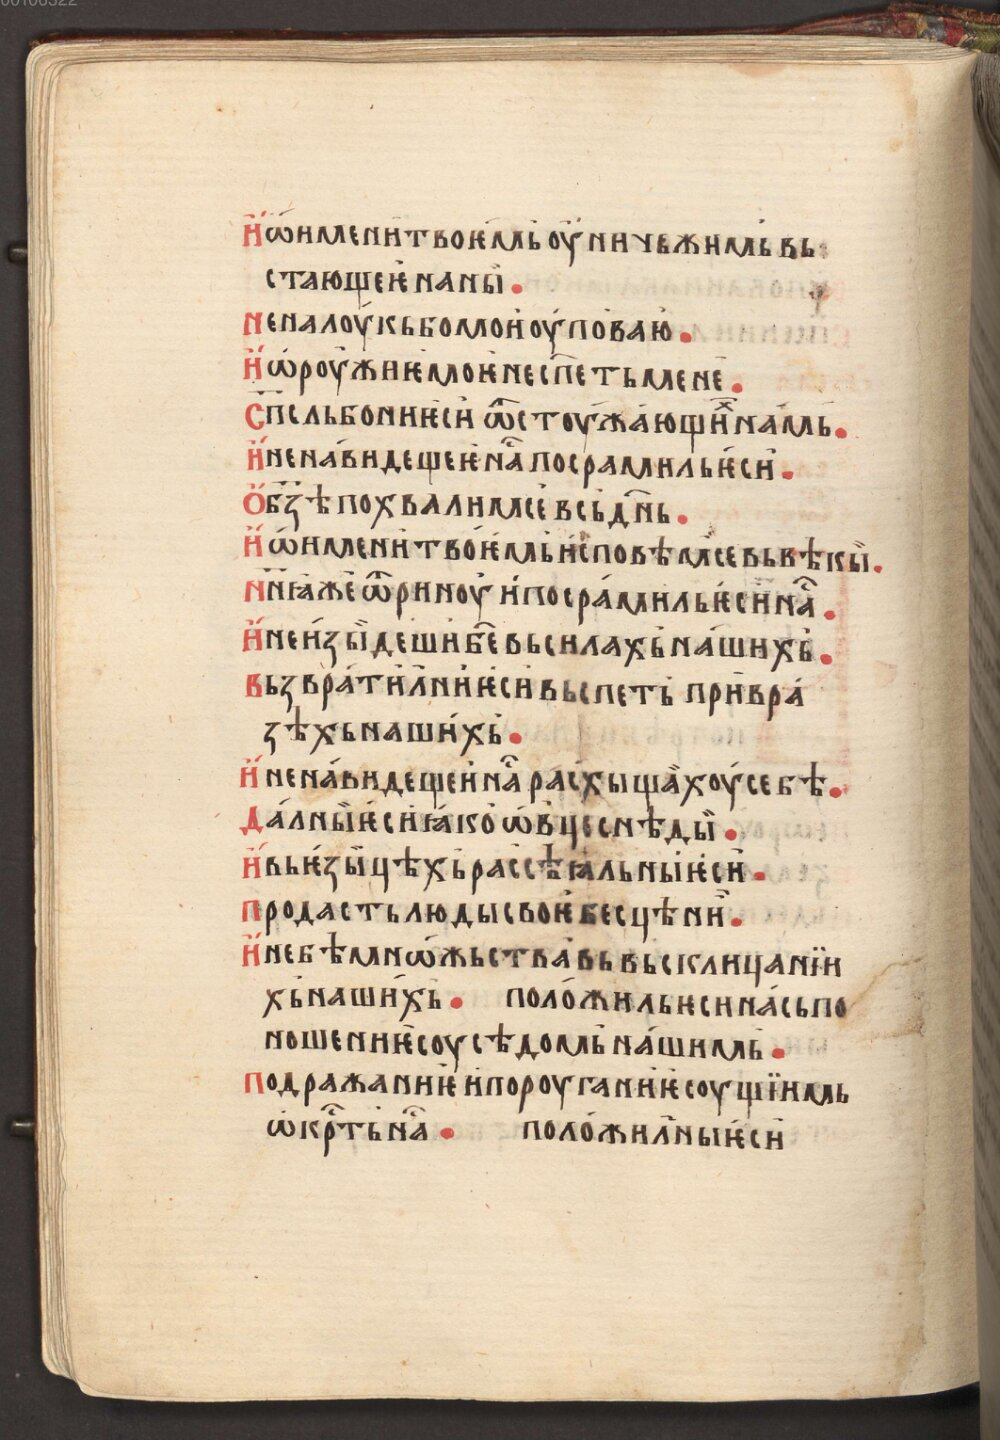 00106322
И҆ ѡ҆ имени твоѥмь оу҆ничьжимь вь
стающеѥ на ны .
не на лоукь бо мои оуповаю .
И҆ ѡроужиѥ моѥ не спсеть мене .
Спсль бо ни ѥси ѿ стоужающйх намь .
И҆ ненавидещеѥ нас посрамиль ѥси .
О бзѣ похвалимсе вьсь днь .
И҆ ѡ имени твоѥмь исповѣмсе вь вѣкы .
Нніа же ѿрину и посрамиль ѥси нас .
И҆ не изыдеши бже вь силахь нашихь .
Вьзвратил ни ѥси вьспеть при вра
зѣхь нашихь .
И҆ ненавидещеи нас расхыщахоу себѣ .
Даль ны ѥси ꙗко ѡвце снѣды .
И҆ вь ѥзыцѣхь рассѣꙗль ны ѥси .
продасть люды своѥ бес цѣни .
И҆ не бѣ мнѡжьства вь вьскличанїи
хь нашихь . положиль ѥси нась по
ношениѥ соусѣдомь нашимь .
Подражаниѥ и пороуганиѥ соущїимь
ѡкрсть нас . положил ны ѥси